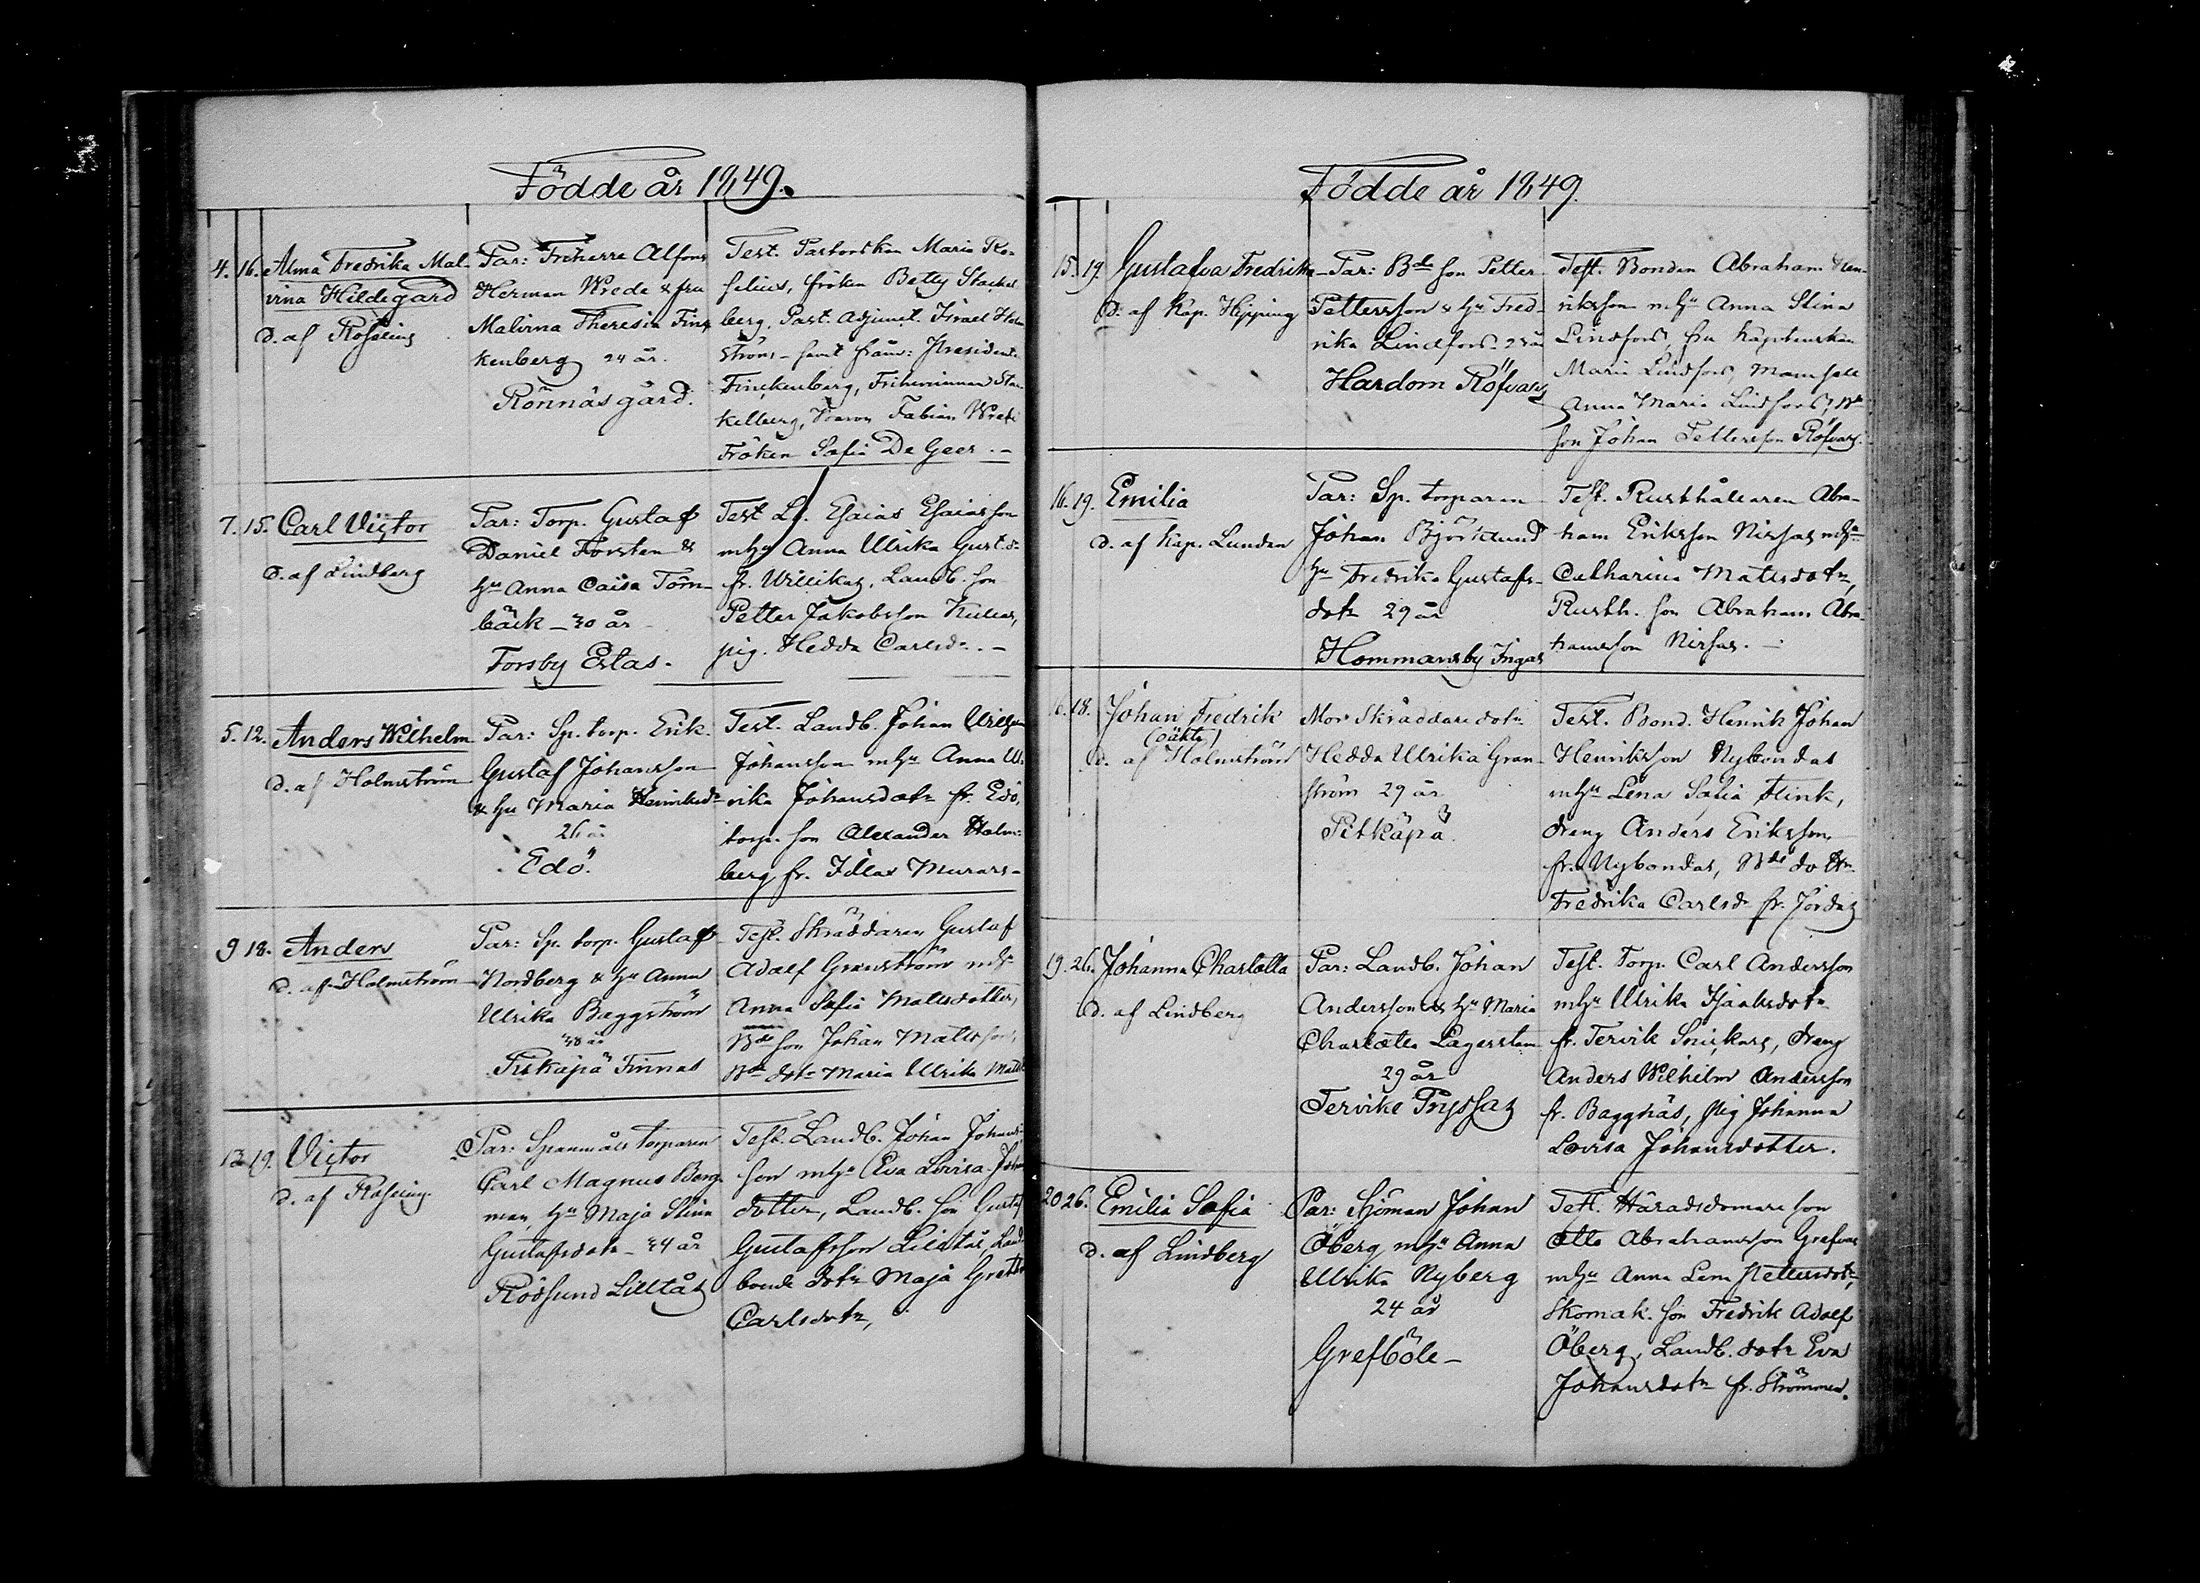 Födde år 1849.
4. 16. Alma Fredrika Mal-
vina Hildegard
d. af Roselius
Par: Friherre Alfons
Herman Wrede & fru
Malvina Theresia Finc
kenberg 24 år.
Rönnäs gård.
Test. Pastorskan Maria Ro-
selius, fröken Betty Stackel
berg, Past. Adjunct. Israel Holm
ström - samt frånv: Presidents
Finckenberg, Friherrinnan Stac
kelberg, Baron Fabian Wrede
Fröken Sofia De Geer. -
7. 15. Carl Victor
d. af Lindberg
Par: Torp. Gustaf
Daniel Forsten &
hu Anna Caisa Törn-
bäck - 30 år
Forsby Estas.
Test Lb. Esaias Esaiasson
mhu Anna Ulrika Gustd.
fr. Willikas, Landb. son
Petter Jakobsson
pig. Hedda Carlsdr. -
5. 12. Anders Wilhelm
d. af Holmström
Par: Sp. torp. Erik
Gustaf Johansson
& hu Maria Henriksdr
26 år
Edö.
Test. Landb. Johan Wilhelm
Johansson mhu Anna Ul-
rika Johansdotr fr. Edö,
torp. son Alexander Holm-
berg fr. Idlax Murars-
9 18. Anders
d. af Holmström
Par: Sp. torp. Gustaf
Nordberg & hu Anna
Ulrika Baggström
38 år
Pitkäpä Finnas
Test. Skräddaren Gustaf
Adolf Granström mhu
Anna Sofia Mattsdotter,
Bde son Johan Mattsson,
Bde dotr Maria Ulrika Matts
13 19. Victor
d. af Roselius
Par: Spanmåls torparen
Carl Magnus Berg
man, hu Maja Stina
Gustafsdotr - 34 år
Rödsund Lilltås
Test. Landb. Johan Johans
son mhu Eva Lovisa Johans
dotter, Landb. son Gustaf
Gustafsson Lilltås, Land
bonde dotr Maja Greta
Carlsdotr,
Födde år 1849.
15. 19. Gustafva Fredrika
d. af Kap. Hipping
Par: Bde son Petter
Pettersson & hu Fred-
rika Lindfors 28 år
Hardom Röfvars
Test. Bonden Abraham Hen-
riksson mhu Anna Stina
Lindfors, fru Kaptenskan
Maria Lindfors, Mamsell
Anna Maria Lindfors, Bde
son Johan Pettersson Röfvars.
16. 19. Emilia
d. af Kap. Lunden
Par: Sp. torparen
Johan Björklund
hu Fredrika Gustafs-
dotr 29 år
Hommansby Ingas
Test. Rusthållaren Abra-
ham Eriksson Nissas mhu
Catharina Mattsdotr,
Rusth. son Abraham Abra-
hamsson Nissas. -
18. Johan Fredrik
(oäkta)
d. af Holmström
Mor Skräddare dotr
Hedda Ulrika Gran-
ström 29 år
Pitkäpä.
Test. Bond. Henrik Johan
Henriksson Nybondas
mhu Lena Sofia Flink,
dreng Anders Eriksson
fr. Nybondas, Bde dottr
Fredrika Carlsdr fr. Jordas
19. 26. Johanna Charlotta
d. af Lindberg
Par: Landb. Johan
Andersson & hu Maria
Charlotta Lagerstam
29 år
Tervike Pryssas
Test. Torp. Carl Andersson
mhu Ulrika Isaksdotr
fr. Tervik Snickars, dreng
Anders Wilhelm Andersson
fr. Baggnäs, pig Johanna
Lovisa Johansdotter.
20 26. Emilia Sofia
d. af Lindberg
Par: Sjöman Johan
Öberg, mhu Anna
Ulrika Nyberg
24 år
Grefböle -
Test. Häradsdomare son
Otto Abrahamsson Grefvas
mhu Anna Lena Pettersdotr,
Skomak. son Fredrik Adolf
Öberg, Landb. dotr Eva
Johansdotr fr. Strömmen.